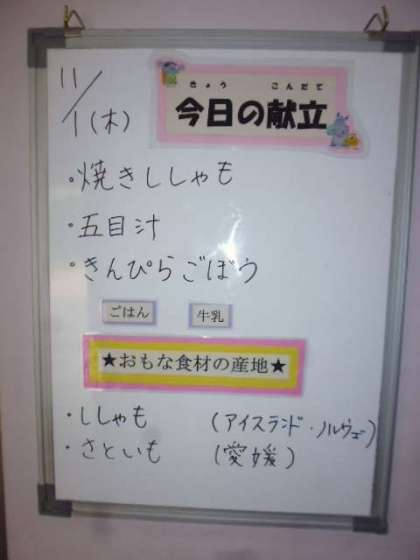 11/1(木)
きょう こんだて
今日の献立
・焼きししゃも
・五目汁
・きんぴらごぼう
ごはん 牛乳
★おもな食材の産地★
・ししゃも (アイスランド・ノルウェー)
・さといも (愛媛)